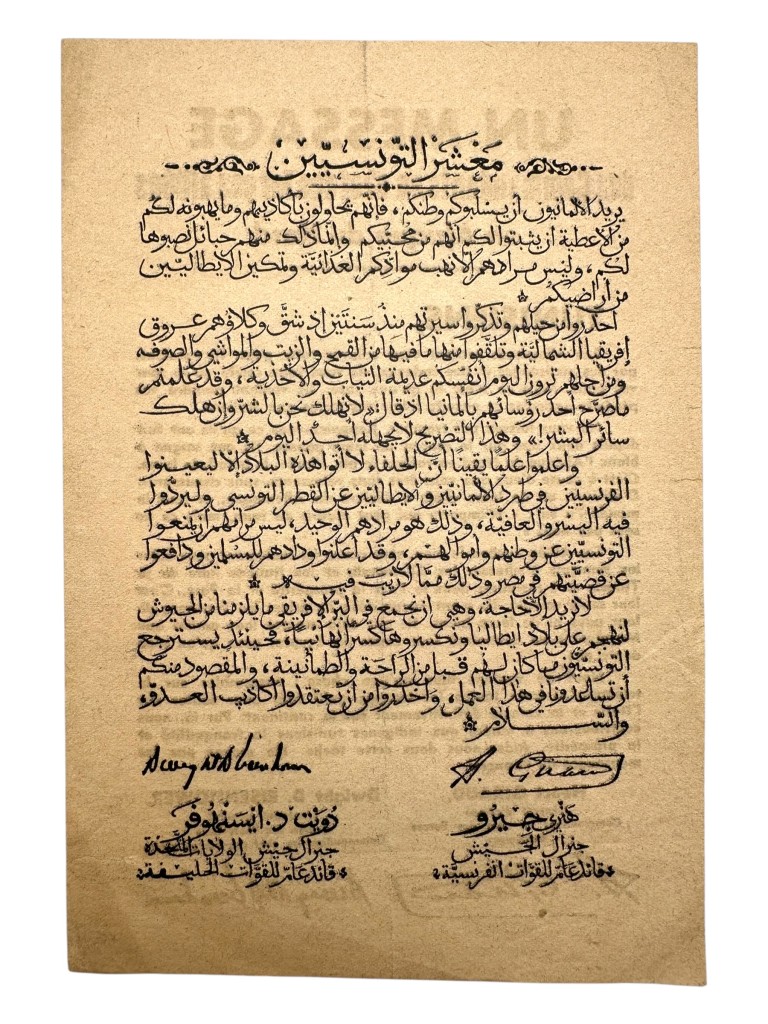 مَعْشَرَ التّونسيّين
يريد الالمانيون أن يسلبوكم وطنكم، فإنهم يحاولون بأكاذيبهم وما يهبونه لكم
من الأعطية أن يثبتوا لكم أنهم من محبّيكم وإنما ذلك منهم حبائل نصبوها
لكم، وليس مرادهم إلا نهب موادكم الغذائيّة وتمكين الايطاليّين
من أراضيكُمْ
احذروا من حيلهم وتذكّروا سيرتهم منذُ سنتَيْن إذ شقَّ وكلاؤهم عروق
إفريقيا الشماليّة وتلقّفوا منها ما فيها من القمح والزيت والمواشي والصوف
ومن أجلهم ترون اليوم أنفسكم عديمة الثياب والأحذية، وقد علمتم
ما صرّح أحد رؤسائهم بألمانيا إذ قال: «لا نهلك نحن بالشرّ وإن هلك
سائر البشر!» وهذا التصريح لا يجهله أحدٌ اليوم
واعلموا علمًا يقينًا أنّ الحلفاء لا أتوا هذه البلاد إلّا ليعينوا
الفرنسيّين في طرد الألمانيّين والايطاليّين عن القطر التونسي وليردّوا
فيه اليسر والعافية، وذلك هو مرادهم الوحيد، ليس مرامهم أن يمنعوا
التونسيّين عن وطنهم وأموالهم، وقد أعلنوا ودادهم للمسلمين ودافعوا
عن قضيّتهم في مصر وذلك ممّا لا ريب فيه
لا نريد إلا حاجة، وهي أن نجمع في البرّ الإفريقي ما يلزمنا من الجيوش
لنهجم على بلاد ايطاليا ونكسروها كسرًا نهائيًا، فحينئذ يسترجع
التونسيّون ما كان لهم قبل من الراحة والطمأنينة، والمقصود منكم
أن تساعدونا في هذا العمل، واحذروا من أن تعتقدوا أكاذيب العدو،
والسّلام
هنري جيرو
جنرال الجيش
قائد عام للقوّات الفرنسيّة
دويت د. ايسنهوفر
جنرال جيش الولايات المتّحدة
قائد عام للقوّات الحليفة